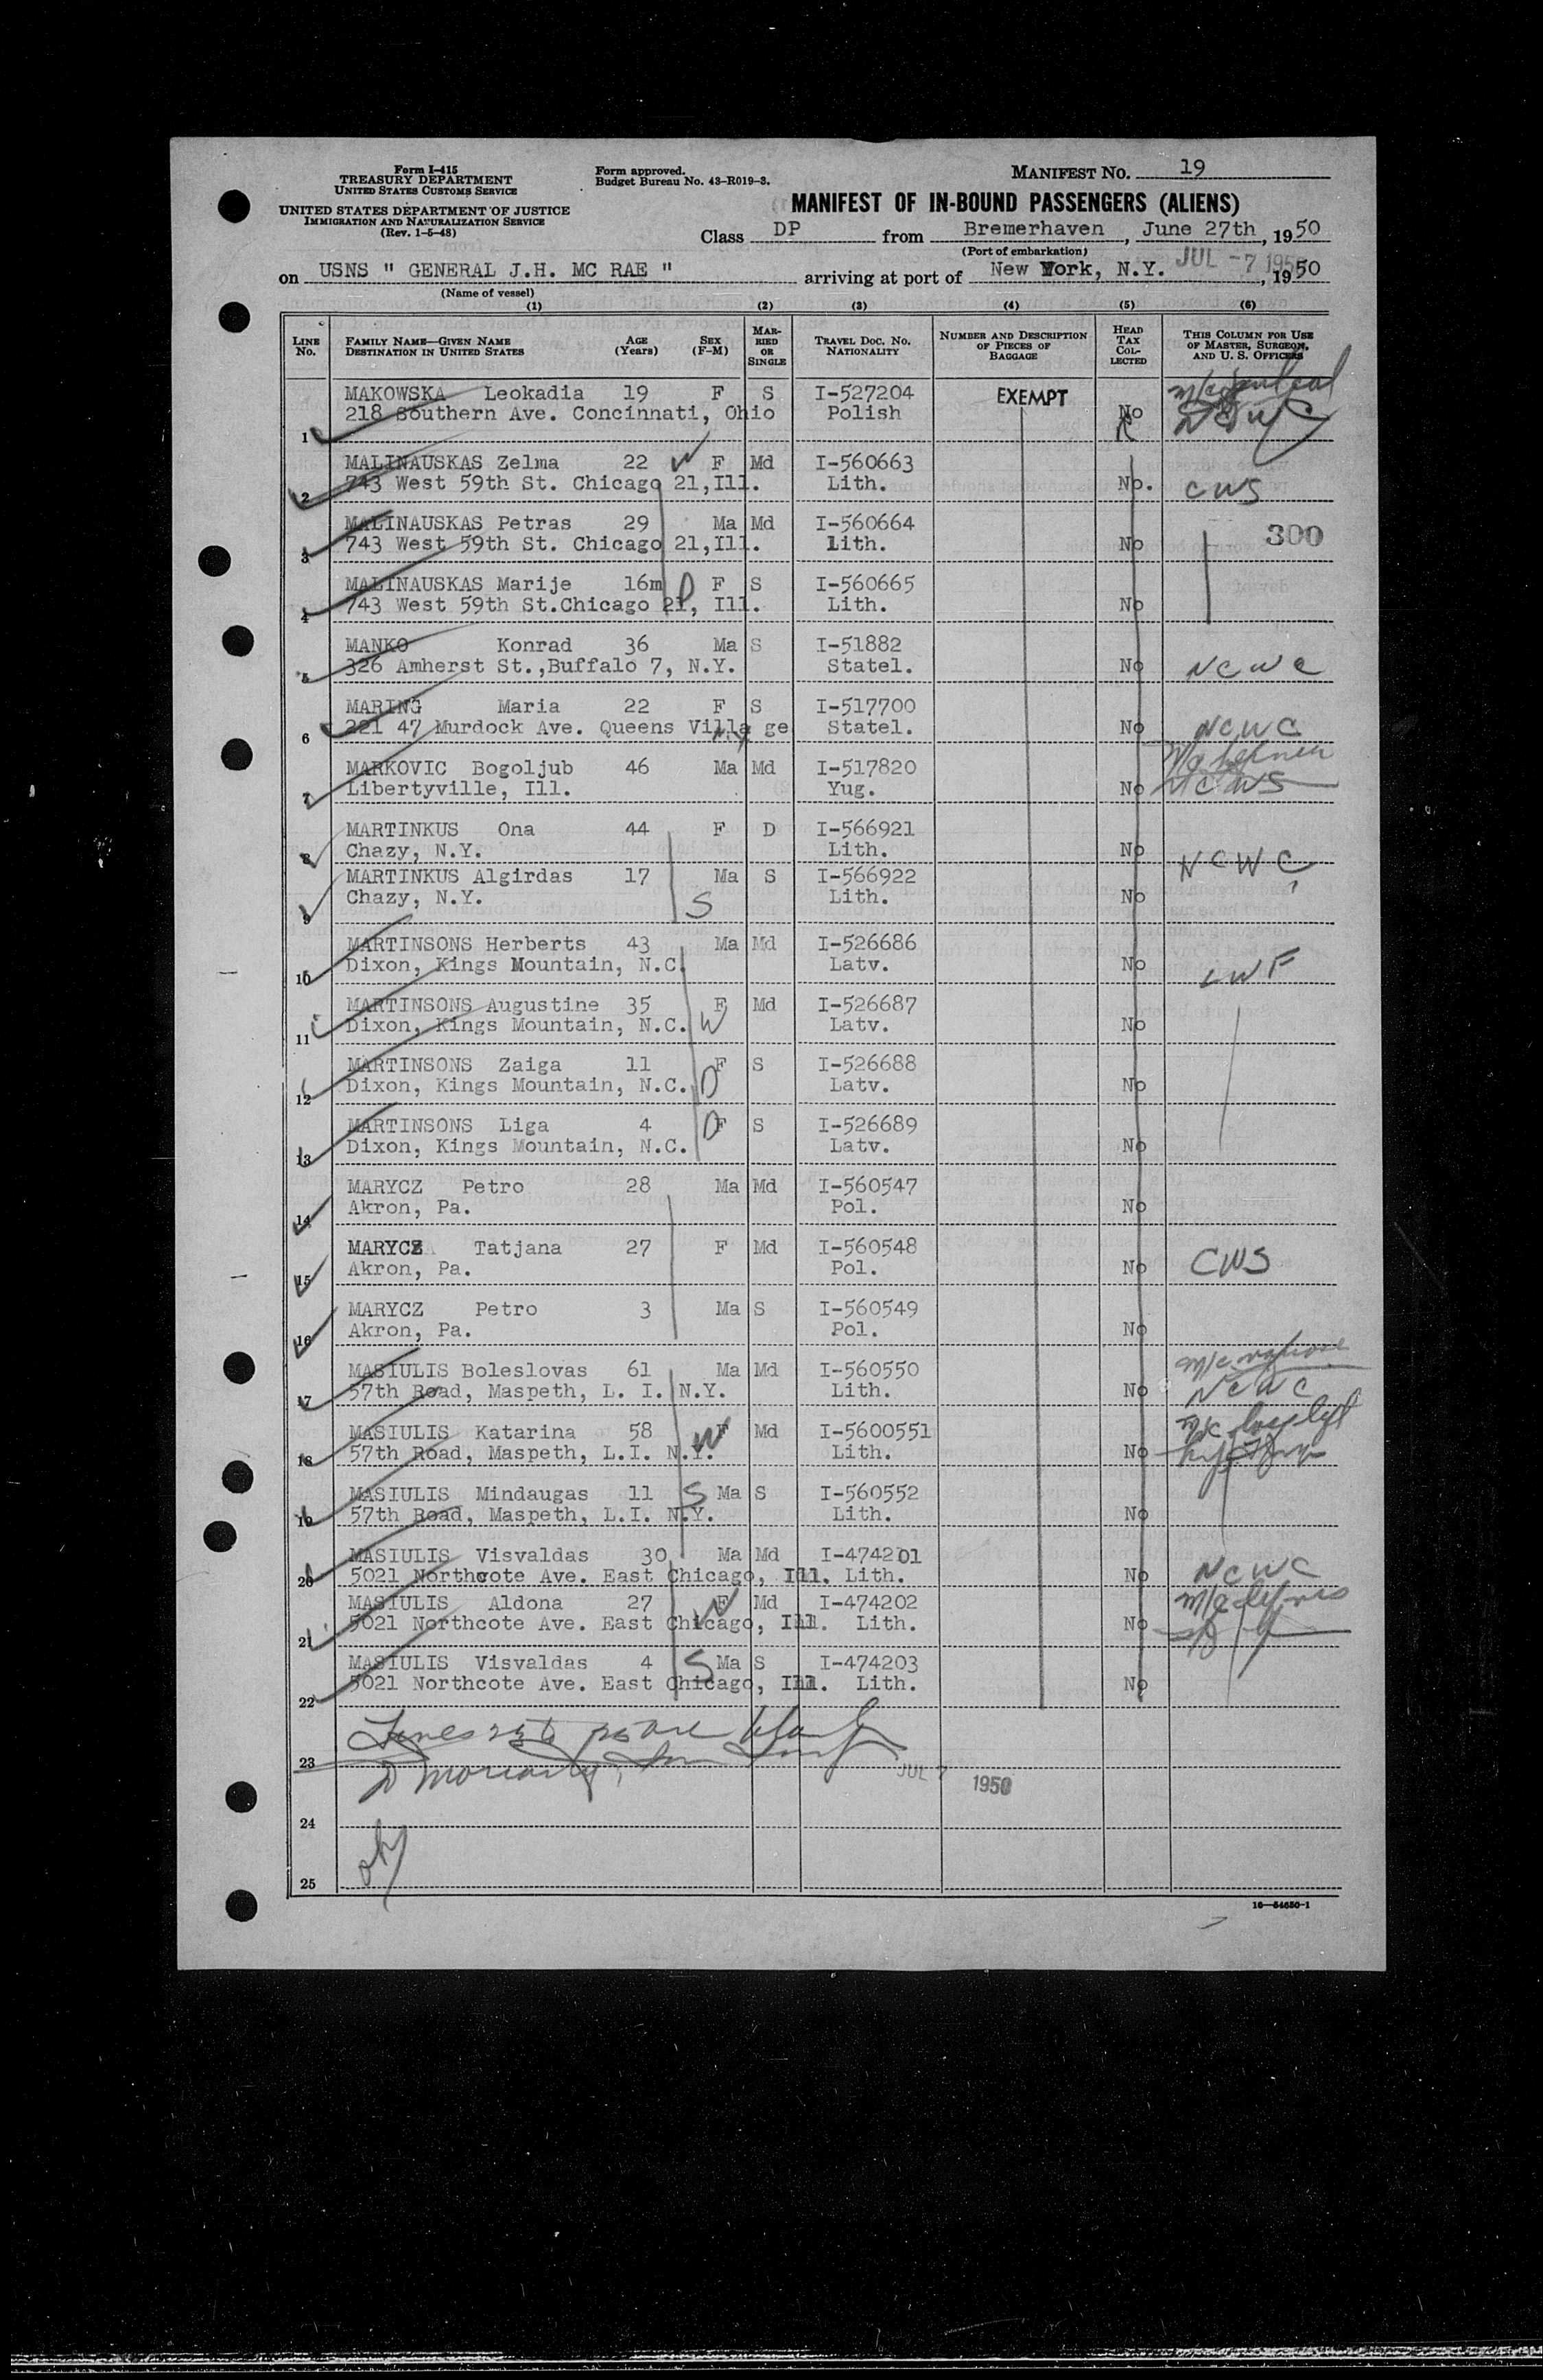 Form I-415
TREASURY DEPARTMENT
UNITED STATES CUSTOMS SERVICE
UNITED STATES DEPARTMENT OF JUSTICE
IMMIGRATION AND NATURALIZATION SERVICE
(Rev. 1-5-48)
Form approved.
Budget Bureau No. 43-R019-3.
MANIFEST No. 19
MANIFEST OF IN-BOUND PASSENGERS (ALIENS)
Class DP from Bremerhaven, June 27th, 1950
(Port of embarkation)
on USNS " GENERAL J.H. MC RAE " arriving at port of New York, N.Y. JUL -7 1950, 1950
(Name of vessel)
(1) (2) (3) (4) (5) (6)
LINE No. FAMILY NAME—GIVEN NAME DESTINATION IN UNITED STATES AGE (Years) SEX (F-M) MARRIED OR SINGLE TRAVEL DOC. NO. NATIONALITY NUMBER AND DESCRIPTION OF PIECES OF BAGGAGE HEAD TAX COLLECTED THIS COLUMN FOR USE OF MASTER, SURGEON, AND U. S. OFFICERS
MAKOWSKA Leokadia 19 F S I-527204 EXEMPT
1 218 Southern Ave. Concinnati, Ohio Polish No
MALINAUSKAS Zelma 22 W F Md I-560663
2 743 West 59th St. Chicago 21,Ill. Lith. No. CWS
MALINAUSKAS Petras 29 Ma Md I-560664 300
3 743 West 59th St. Chicago 21,Ill. Lith. No
MALINAUSKAS Marije 16m D F S I-560665
4 743 West 59th St.Chicago 21, Ill. Lith. No
MANKO Konrad 36 Ma S I-51882
5 326 Amherst St.,Buffalo 7, N.Y. Statel. No NCWC
MARING Maria 22 F S I-517700
6 221 47 Murdock Ave. Queens Village N.Y. Statel. No NCWC
MARKOVIC Bogoljub 46 Ma Md I-517820
7 Libertyville, Ill. Yug. No
MARTINKUS Ona 44 F D I-566921
8 Chazy, N.Y. Lith. No NCWC
MARTINKUS Algirdas 17 Ma S I-566922
9 Chazy, N.Y. S Lith. No
MARTINSONS Herberts 43 Ma Md I-526686
10 Dixon, Kings Mountain, N.C. Latv. No LWF
MARTINSONS Augustine 35 F Md I-526687
11 Dixon, Kings Mountain, N.C. W Latv. No
MARTINSONS Zaiga 11 F S I-526688
12 Dixon, Kings Mountain, N.C. D Latv. No
MARTINSONS Liga 4 D F S I-526689
13 Dixon, Kings Mountain, N.C. Latv. No
MARYCZ Petro 28 Ma Md I-560547
14 Akron, Pa. Pol. No
MARYCZ Tatjana 27 F Md I-560548
15 Akron, Pa. Pol. No CWS
MARYCZ Petro 3 Ma S I-560549
16 Akron, Pa. Pol. No
MASIULIS Boleslovas 61 Ma Md I-560550
17 57th Road, Maspeth, L. I. N.Y. Lith. No NCWC
MASIULIS Katarina 58 W F Md I-5600551
18 57th Road, Maspeth, L.I. N.Y. Lith. No
MASIULIS Mindaugas 11 S Ma S I-560552
19 57th Road, Maspeth, L.I. N.Y. Lith. No
MASIULIS Visvaldas 30 Ma Md I-474201
20 5021 Northcote Ave. East Chicago, Ill. Lith. No NCWC
MASIULIS Aldona 27 W F Md I-474202
21 5021 Northcote Ave. East Chicago, Ill. Lith. No
MASIULIS Visvaldas 4 S Ma S I-474203
22 5021 Northcote Ave. East Chicago, Ill. Lith. No
Lines 23 to 25 are blank
23 D Moriarty
JUL 7 1950
24
ok
25
16—54650-1